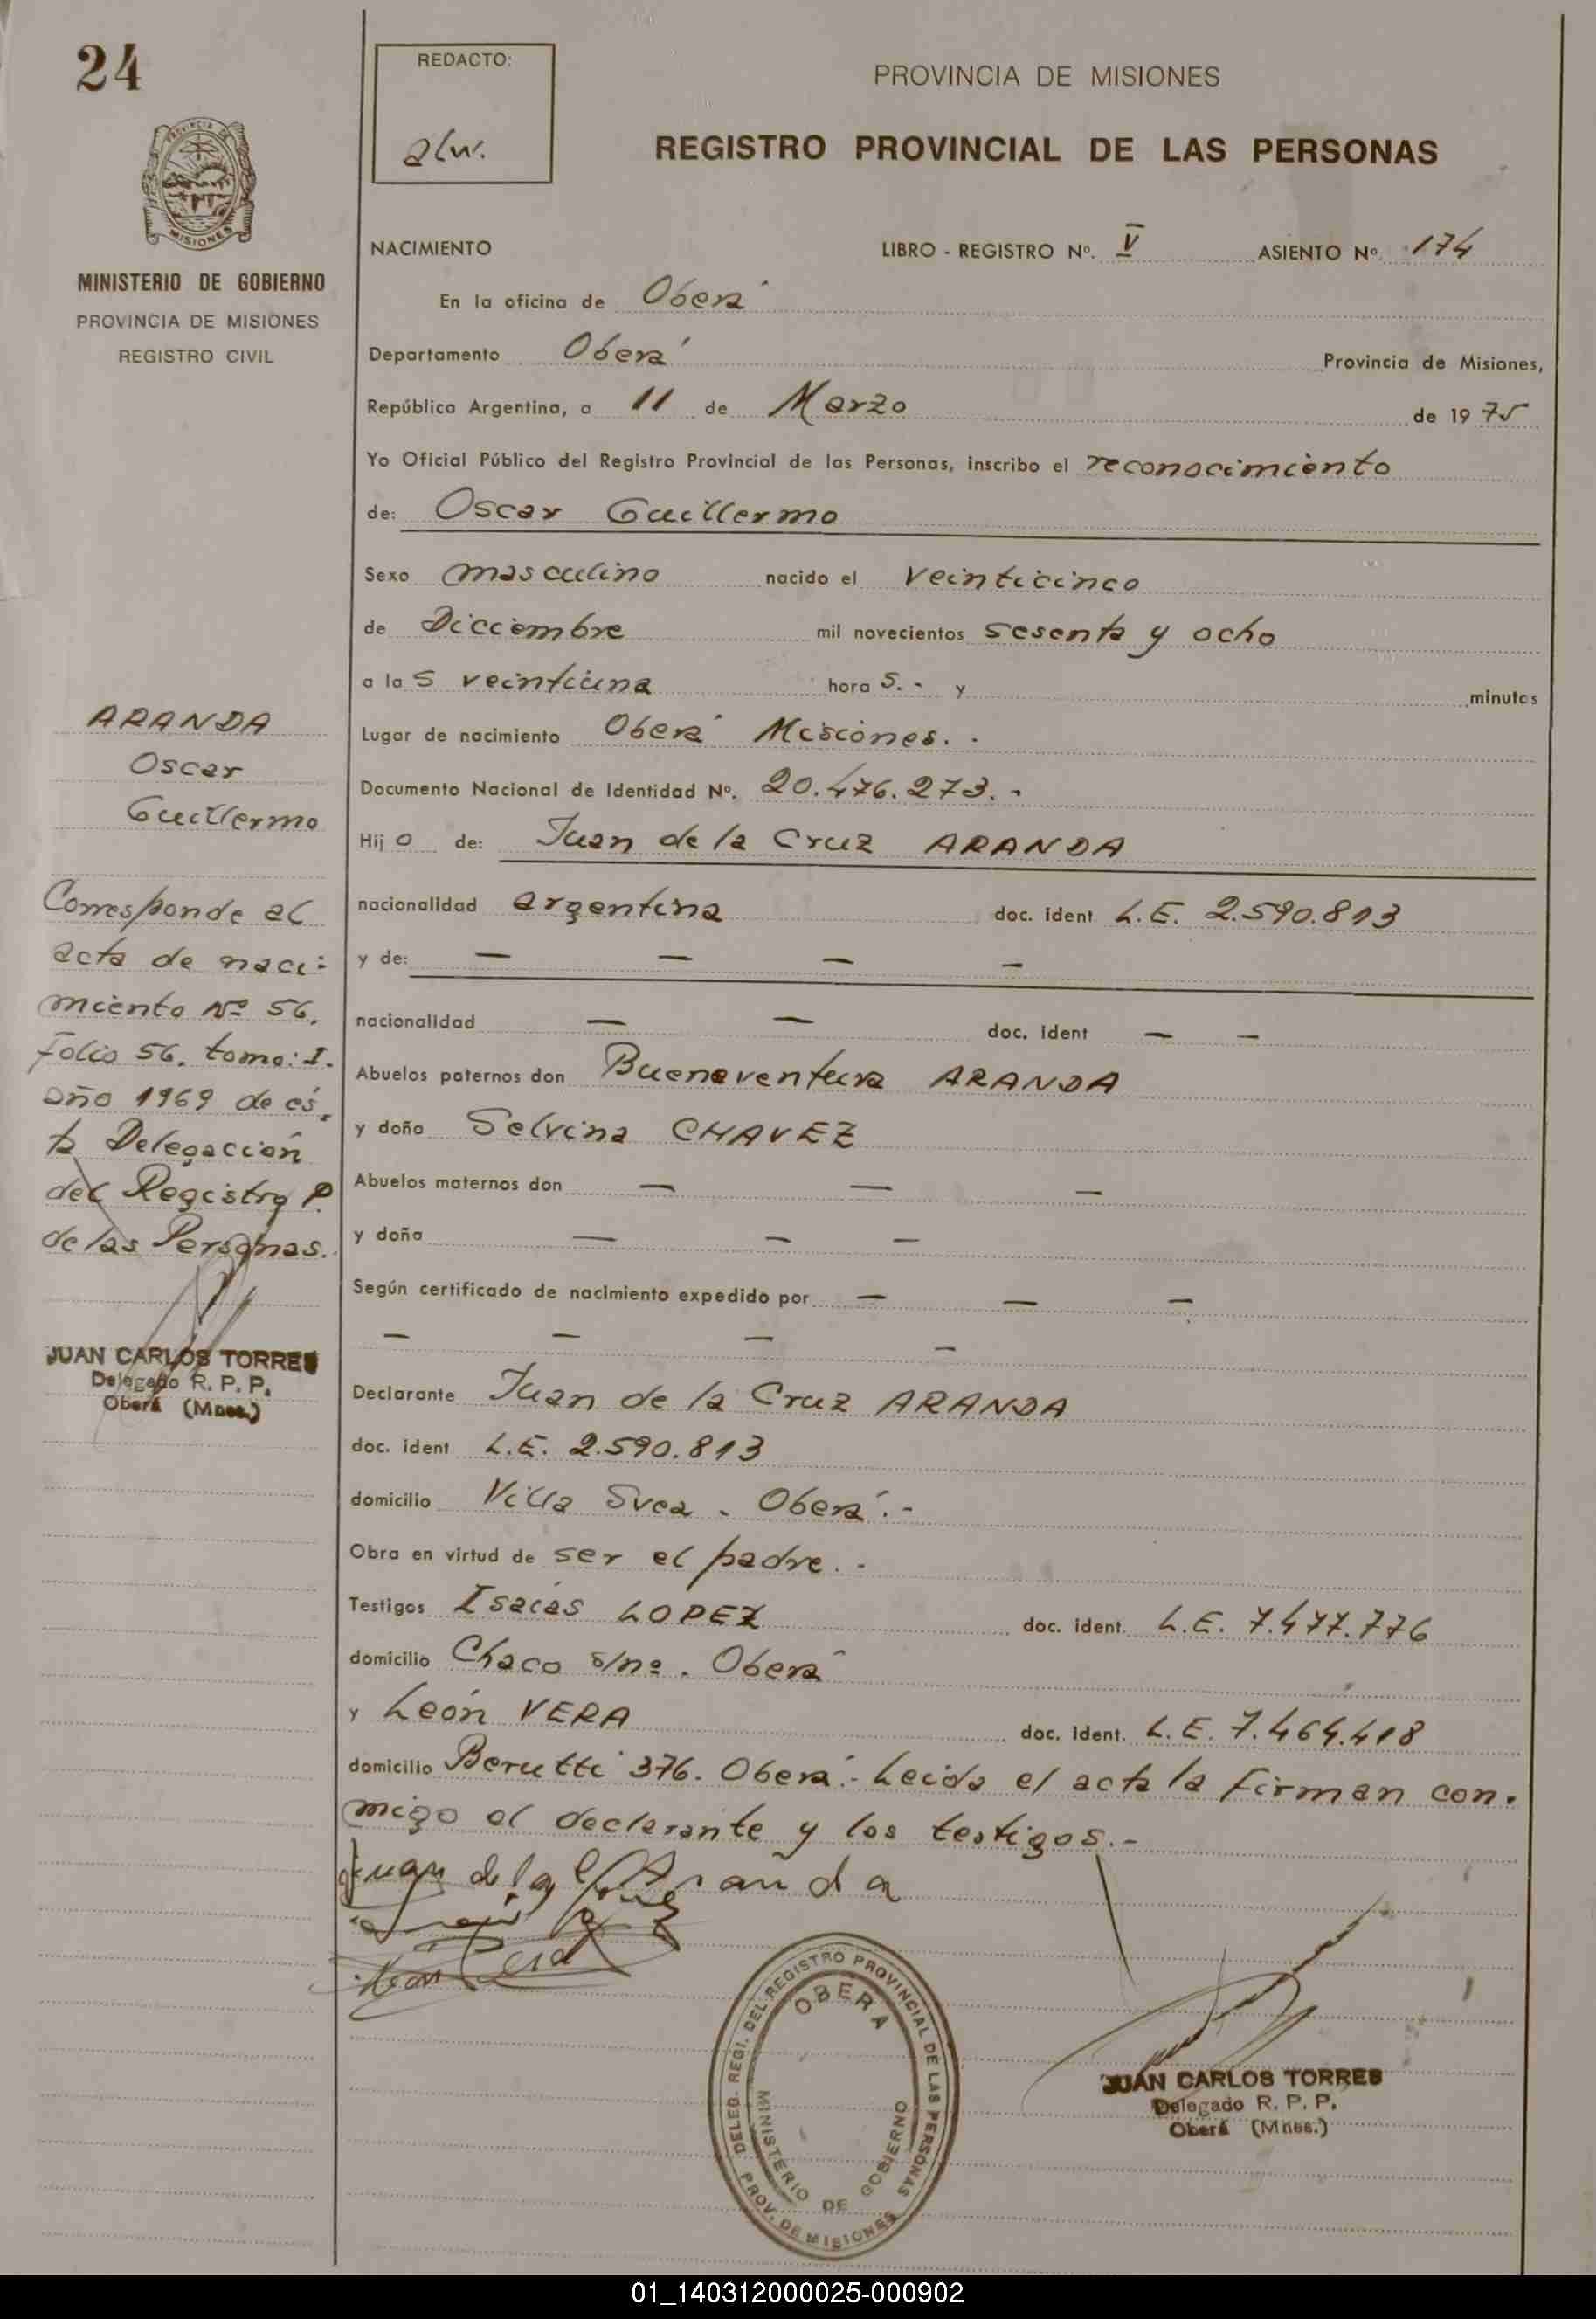 24
REDACTO:
alw.
PROVINCIA DE MISIONES
REGISTRO PROVINCIAL DE LAS PERSONAS
PROVINCIA DE
MISIONES
MINISTERIO DE GOBIERNO
PROVINCIA DE MISIONES
REGISTRO CIVIL
NACIMIENTO LIBRO - REGISTRO Nº. V ASIENTO Nº 174
En la oficina de Oberá
Departamento Oberá Provincia de Misiones,
República Argentina, a 11 de Marzo de 1975
Yo Oficial Público del Registro Provincial de las Personas, inscribo el reconocimiento
de: Oscar Guillermo
Sexo masculino nacido el veinticinco
de Diciembre mil novecientos sesenta y ocho
a las veintiuna horas.- y minutos
Lugar de nacimiento Oberá Misiones.-
Documento Nacional de Identidad Nº. 20.476.273.-
Hijo de: Juan de la Cruz ARANDA
nacionalidad argentina doc. ident L.E. 2.590.813
y de: — — — —
nacionalidad — — doc. ident — —
Abuelos paternos don Buenaventura ARANDA
y doña Selvina CHAVEZ
Abuelos maternos don — — —
y doña — — —
Según certificado de nacimiento expedido por — — —
— — — —
Declarante Juan de la Cruz ARANDA
doc. ident L.E. 2.590.813
domicilio Villa Svea - Oberá.-
Obra en virtud de ser el padre.-
Testigos Isaías LOPEZ doc. ident. L.E. 7.477.776
domicilio Chaco s/nº. Oberá
y León VERA doc. ident. L.E. 7.464.418
domicilio Berutti 376. Oberá.- Leida el acta la firman con-
migo el declarante y los testigos.-
Juan de la Cruz Aranda
ARANDA
Oscar
Guillermo
Corresponde al
acta de naci-
miento Nº 56,
Folio 56. tomo: I.
año 1969 de és-
ta Delegación
del Registro P.
de las Personas.
JUAN CARLOS TORRES
Delegado R. P. P.
Oberá (Mnes.)
DELEG. REGI. DEL REGISTRO PROVINCIAL DE LAS PERSONAS
OBERA
MINISTERIO DE GOBIERNO
PROV. DE MISIONES
JUAN CARLOS TORRES
Delegado R. P. P.
Oberá (Mnes.)
01_140312000025-000902